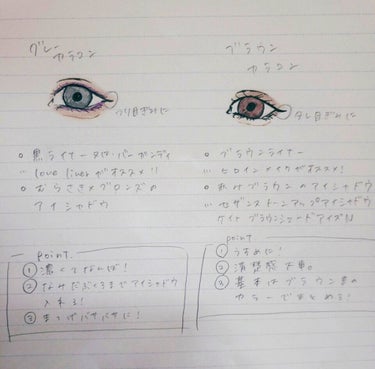 グレー
カラコン
つり目ぎみに
○ 黒ライナー又はバーガンディ
love linerがオススメ!!
○ むらさき×ブロンズの
アイシャドウ
point
① 濃くてなんぼ!
② なみだぶくろまでアイシャドウ
入れる!
③ まつげバサバサに!
ブラウン
カラコン
タレ目ぎみに
○ ブラウンライナー
ヒロインメイクがオススメ!
○ ブラウンのアイシャドウ
セザンヌトーンアップアイシャドウ
ケイト ブラウンシェードアイズN
point
① うすめに!
② 清楚感大事。
③ 基本はブラウン系の
カラーでまとめる!